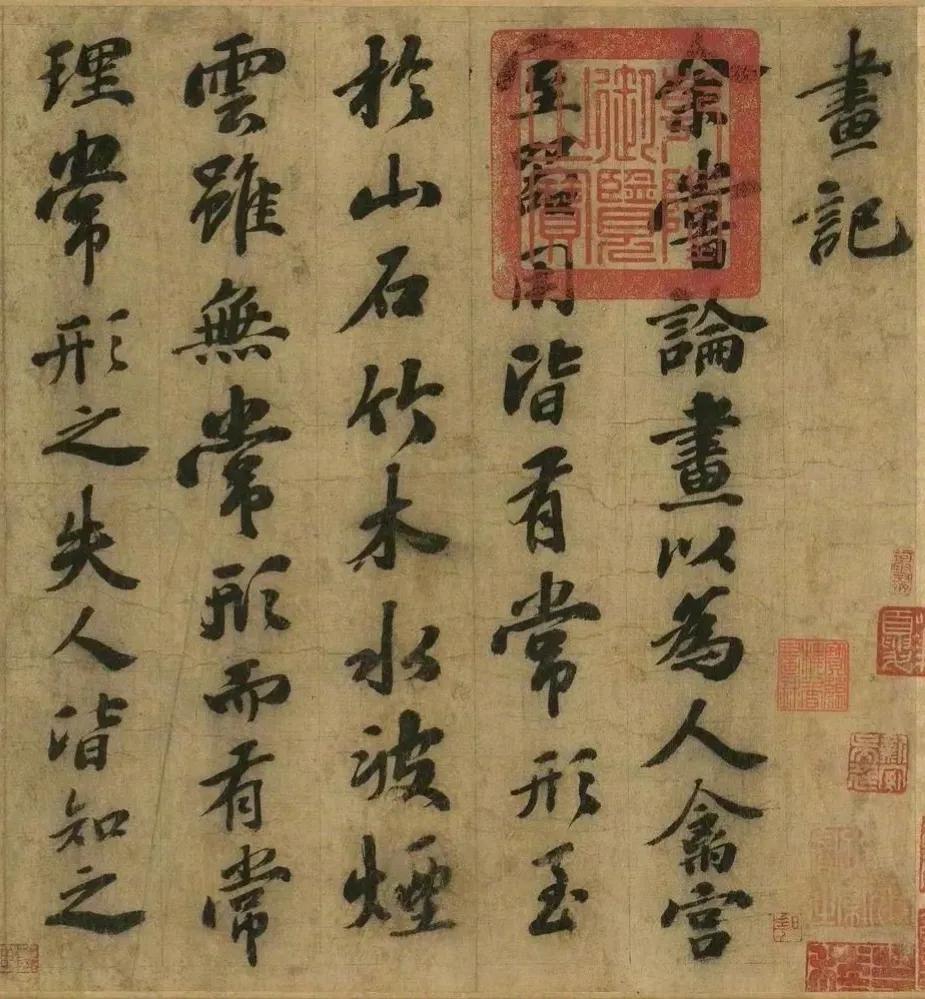 畫記
余嘗論畫以為人禽宮
室器用皆有常形至
於山石竹木水波煙
雲雖無常形而有常
理常形之失人皆知之
乾隆御覽之寶